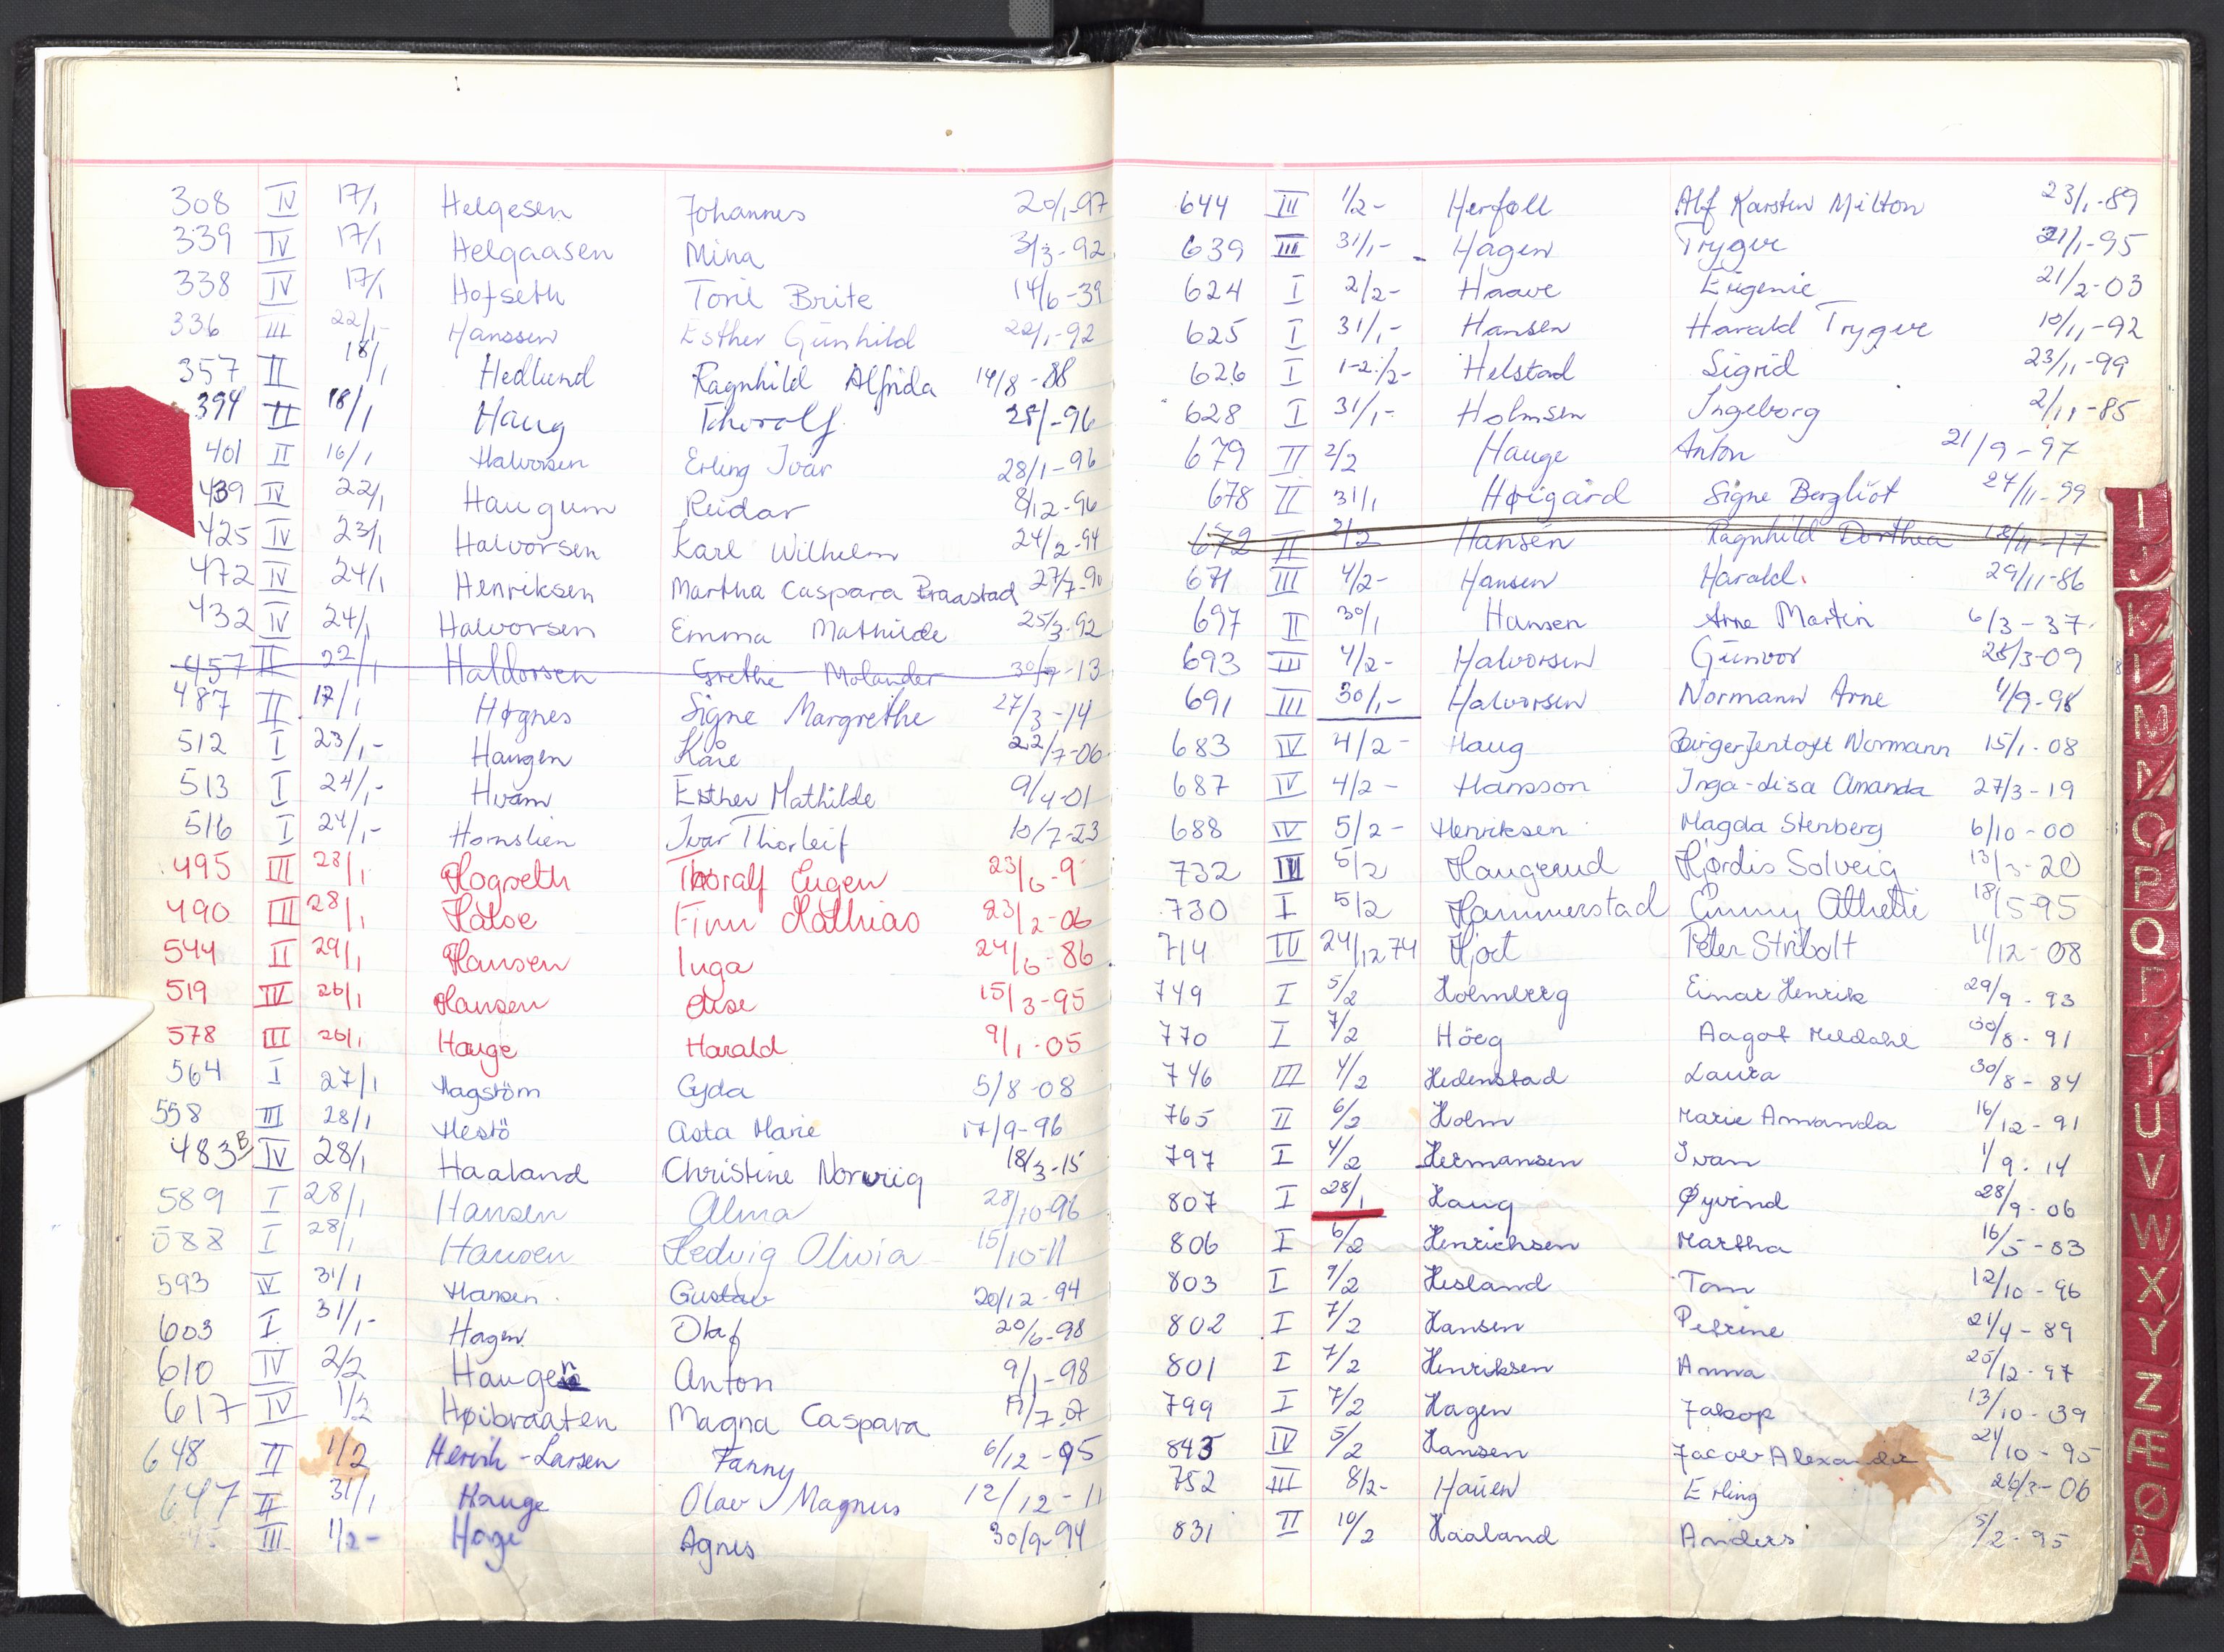 308 IV 17/1 Helgesen Johannes 20/1-97
339 IV 17/1 Helgaasen Mina 3/3-92
338 IV 17/1 Hofseth Toril Brite 14/6-39
336 III 22/1- Hanssen Esther Gunhild 22/1-92
357 II 18/1 Hedlund Ragnhild Alfrida 14/8-88
394 II 18/1 Haug Thoralf 28/-96
401 II 16/1 Halvorsen Erling Ivar 28/1-96
439 IV 22/1 Haugum Reidar 8/12-96
425 IV 23/1 Halvorsen Karl Wilhelm 24/2-94
472 IV 24/1 Henriksen Martha Caspara Braastad 27/7-90
432 IV 24/1 Halvorsen Emma Mathilde 25/3-92
457 II 22/1 Haldorsen Grethe Molander 30/9-13
487 II 17/1 Høgnes Signe Margrethe 27/3-14
512 I 23/1- Haugen Kåre 22/7-06
513 I 24/1- Hvam Esther Mathilde 9/4-01
516 I 24/1- Hornslien Ivar Thorleif 10/7-23
495 III 28/1 Hogseth Thoralf Eugen 23/6-9
490 III 28/1 Halse Finn Mathias 23/2-06
544 II 29/1 Hansen Inga 24/6-86
519 IV 26/1 Hansen Else 15/3-95
578 III 26/1 Hauge Harald 9/1-05
564 I 27/1 Hagstöm Gyda 5/8-08
558 III 28/1 Hestö Asta Marie 17/9-96
483B IV 28/1 Haaland Christine Norwiig 18/3-15
589 I 28/1 Hansen Alma 28/10-96
588 I 28/1 Hansen Hedvig Olivia 15/10-11
593 IV 31/1 Hansen Gustav 20/12-94
603 I 31/1- Hagen Olaf 20/6-98
610 IV 2/2 Haugen Anton 9/1-98
617 IV 1/2 Høibraaten Magna Caspara
648 II 1/2 Henrik-Larsen Fanny 6/12-95
647 II 31/1 Hauge Olav Magnus 12/12-11
III 1/2- Hage Agnes 30/9-94
644 III 1/2- Herføll Alf Karsten Milton 23/1-89
639 III 31/1- Hagen Trygve 21/1-95
624 I 2/2- Haave Eugenie 21/2-03
625 I 31/1- Hansen Harald Trygve 10/11-92
626 I 1-2/2- Helstad Sigrid 23/11-99
628 I 31/1- Holmsen Ingeborg 2/11-85
679 II 2/2 Hauge Anton 21/9-97
678 II 31/1 Høigård Signe Bergliot 27/11-99
672 II 2/2 Hansen Ragnhild Dorthea 18/4-17
671 III 4/2- Hansen Harald 29/11-86
697 II 30/1 Hansen Arne Martin 6/3-37
693 III 4/2- Halvorsen Gunvor 28/3-09
691 III 30/1- Halvorsen Normann Arne 4/9-98
683 IV 4/2- Haug Birger Jentoft Normann 15/1-08
687 IV 4/2- Hansson Inga-disa Amanda 27/3-19
688 IV 5/2- Henriksen Magda Stenberg 6/10-00
732 III 5/2 Haugerud Hjørdis Solveig 13/3-20
730 I 5/2 Hammerstad Emmy Athette 18/5-95
714 IV 24/12 74 Hjort Peter Stribolt 11/12-08
749 I 5/2 Holmberg Einar Henrik 29/9-93
770 I 7/2 Höeg Aagot Meldahl 30/8-91
746 III 4/2 Hedenstad Laura 30/8-84
765 II 6/2 Holm Marie Amanda 16/12-91
797 I 4/2 Hermansen Ivan 1/9-14
807 I 28/1 Haug Øyvind 28/9-06
806 I 6/2 Henrichsen Martha 16/5-83
803 I 7/2 Hesland Tom 12/10-96
802 I 7/2 Hansen Petrine 21/4-89
801 I 7/2 Henriksen Anna 25/12-97
799 I 7/2 Hagen Jakop 13/10-39
843 IV 5/2 Hansen Jacob Alexander 21/10-95
752 III 8/2- Hauen Erling 26/3-06
831 II 10/2 Haaland Anders 5/2-95
I
J
K
L
M
N
O
P
Q
R
T
U
V
W
X
Y
Z
Æ
Ø
Å